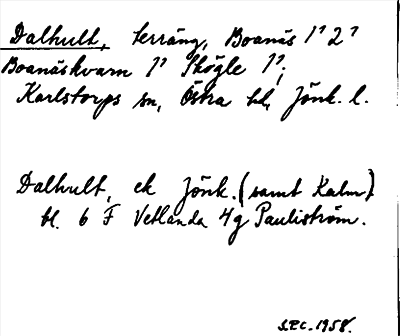 Dalhult, terräng, Boanäs 1² 2¹
Boanäskvarn 1¹ Skögle 1¹;
Karlstorps sn, Östra hd, Jönk. l.
Dalhult, ek Jönk. (samt Kalm)
bl. 6 F Vetlanda 4g Pauliström.
S.E.C. 1958.